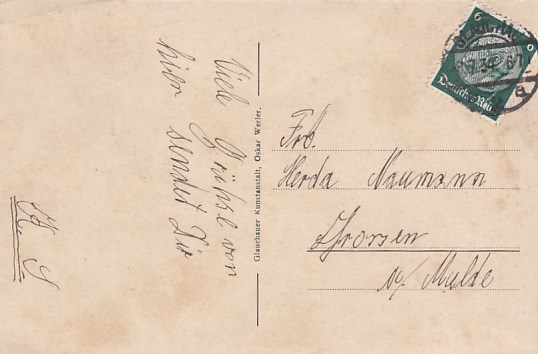 Viele Grüße von
hier sendet Dir
K. S.
Glauchauer Kunstanstalt, Oskar Werler.
Frl.
Herda Naumann
a/ Mulde
Deutsches Reich